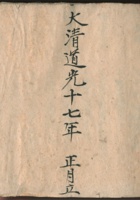 大清道光十七年 正月立